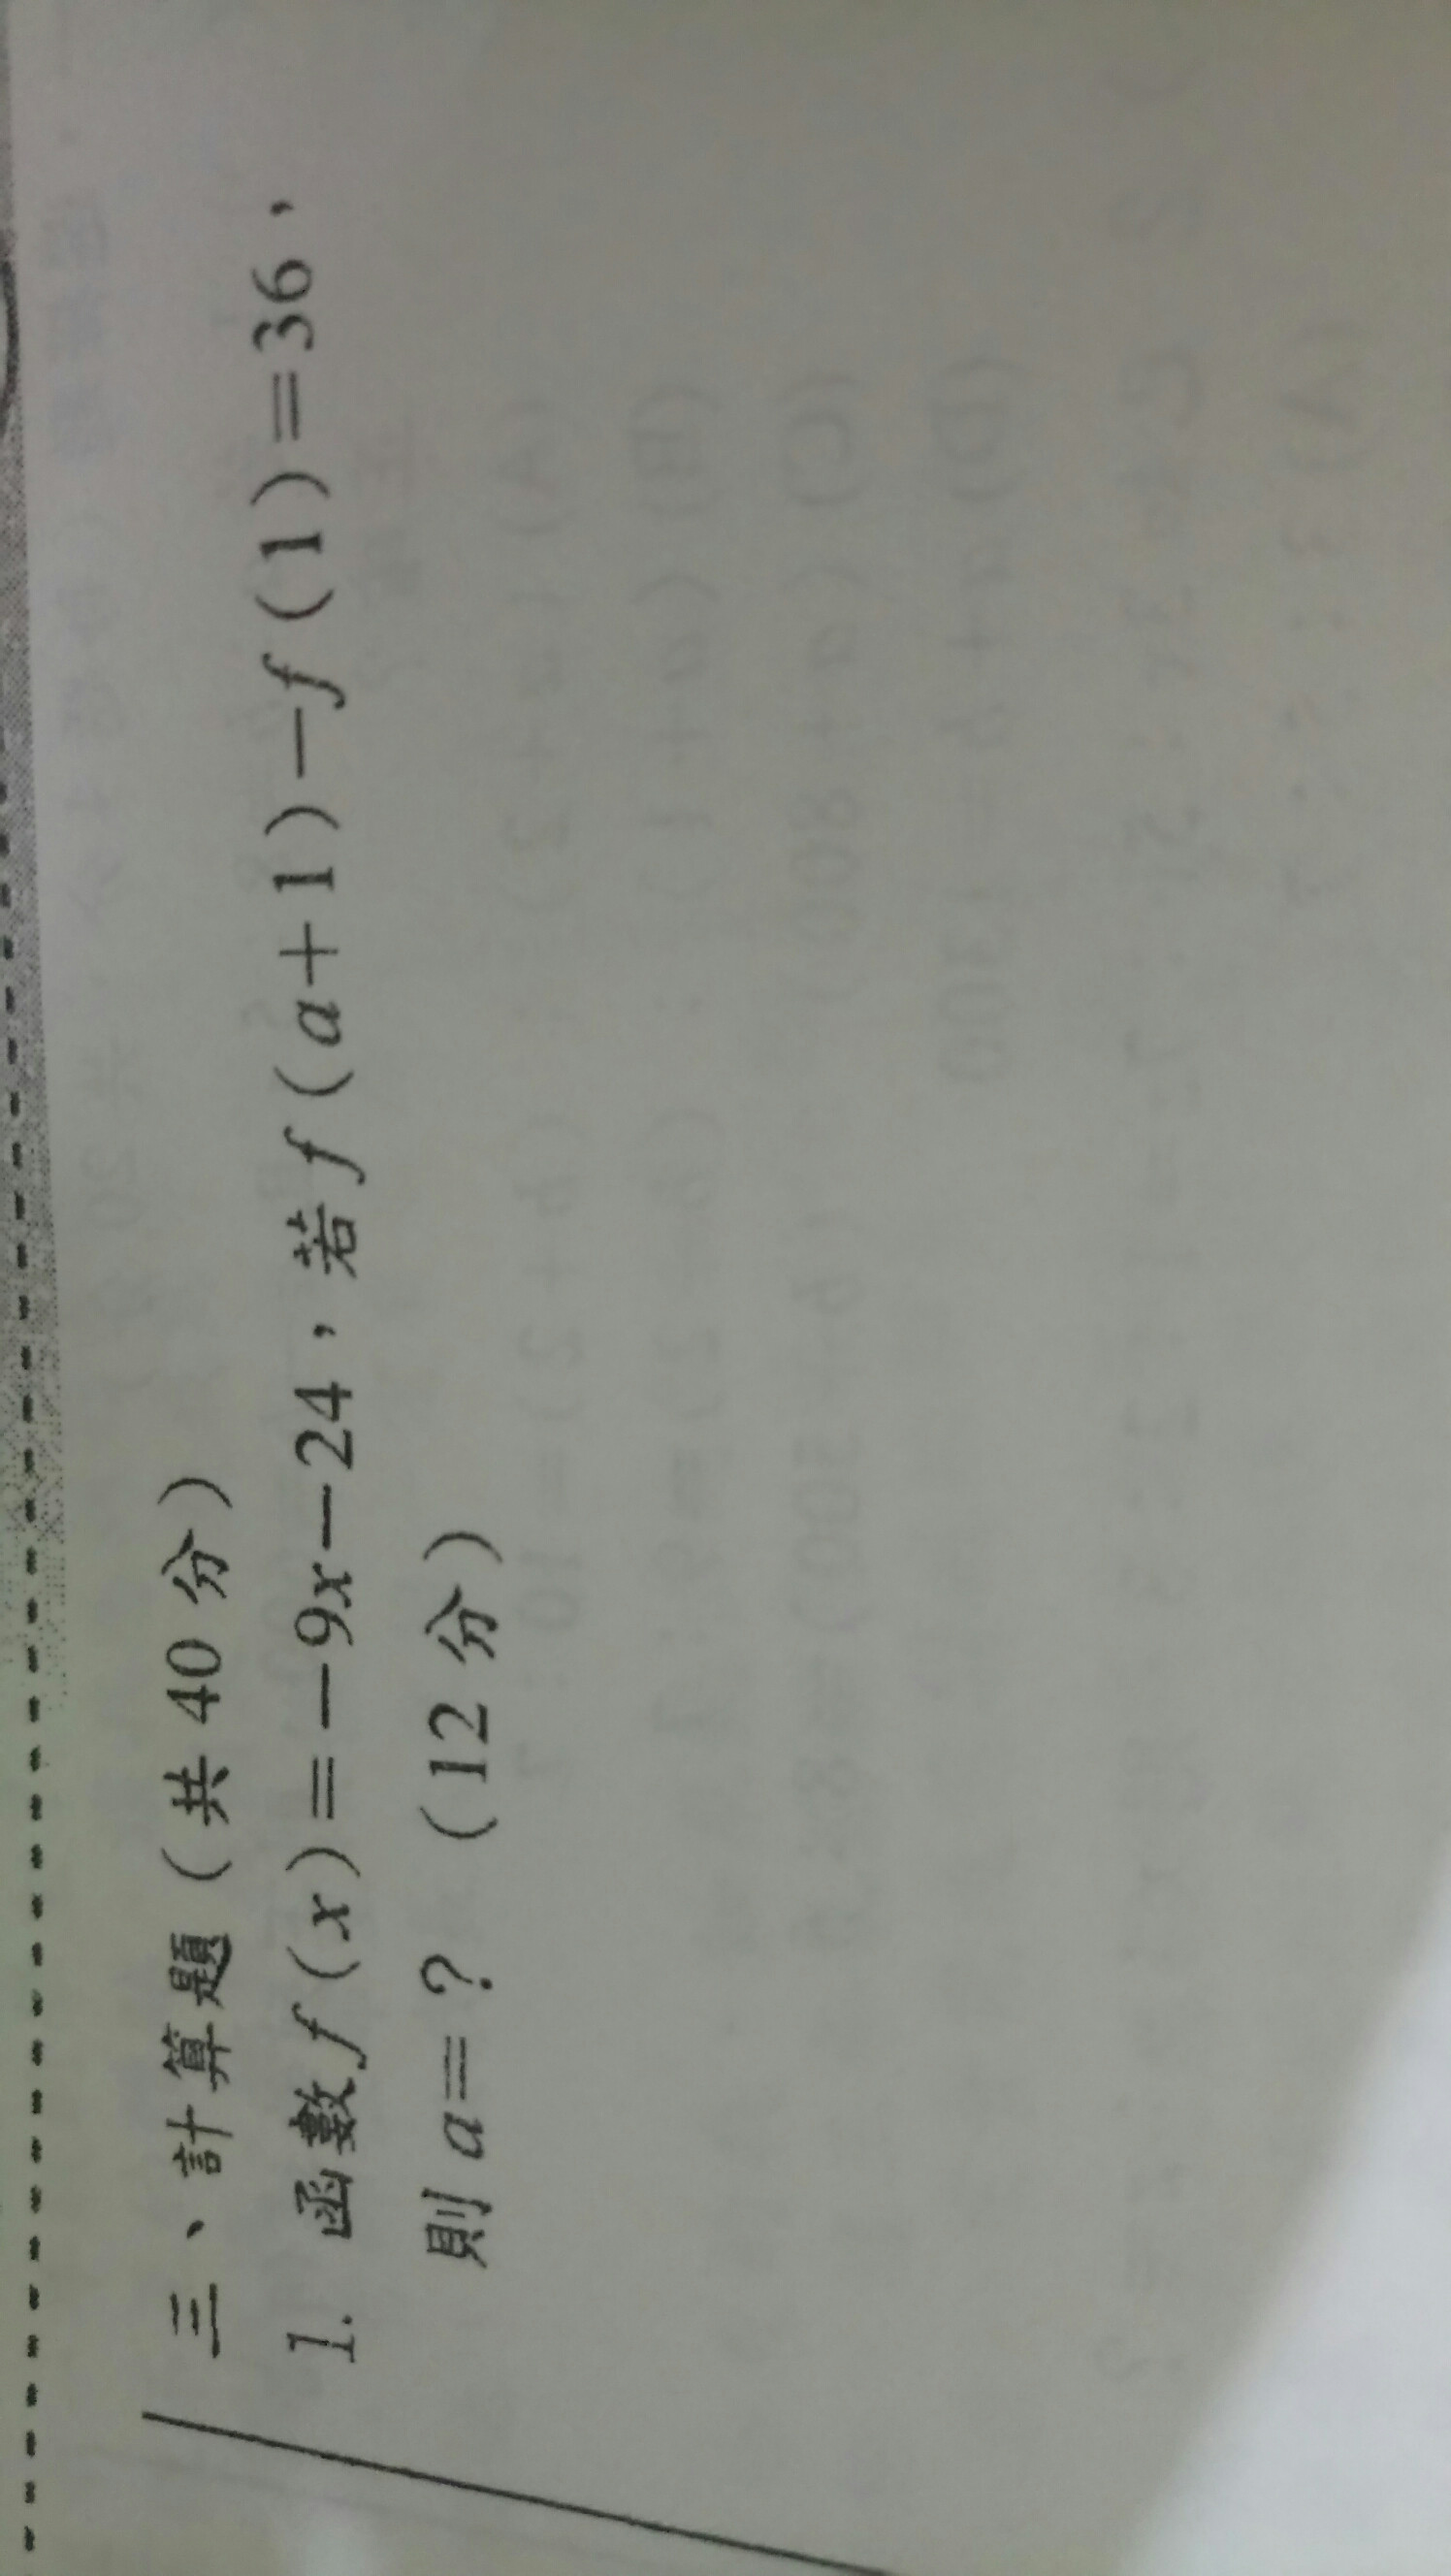 三、計算題（共 40 分）
1. 函數 f(x)=－9x－24，若 f(a＋1)－f(1)=36，
則 a=？（12 分）